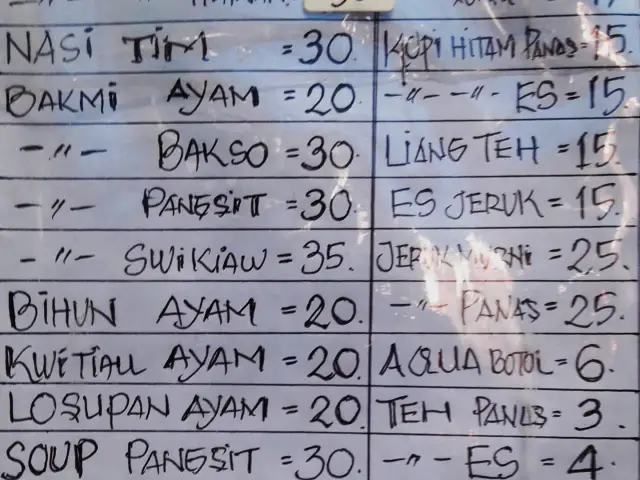 NASI TIM = 30.
BAKMI AYAM = 20
-"- BAKSO = 30.
-"- PANGSIT = 30.
-"- SWIKIAW = 35.
BIHUN AYAM = 20.
KWETIAU AYAM = 20.
LOSUPAN AYAM = 20.
SOUP PANGSIT = 30.
KOPI HITAM PANAS = 15.
-"- -"- ES = 15
LIANG TEH = 15.
ES JERUK = 15.
JERUK MURNI = 25.
-"- PANAS = 25.
AQUA BOTOL = 6.
TEH PANAS = 3.
-"- ES = 4.